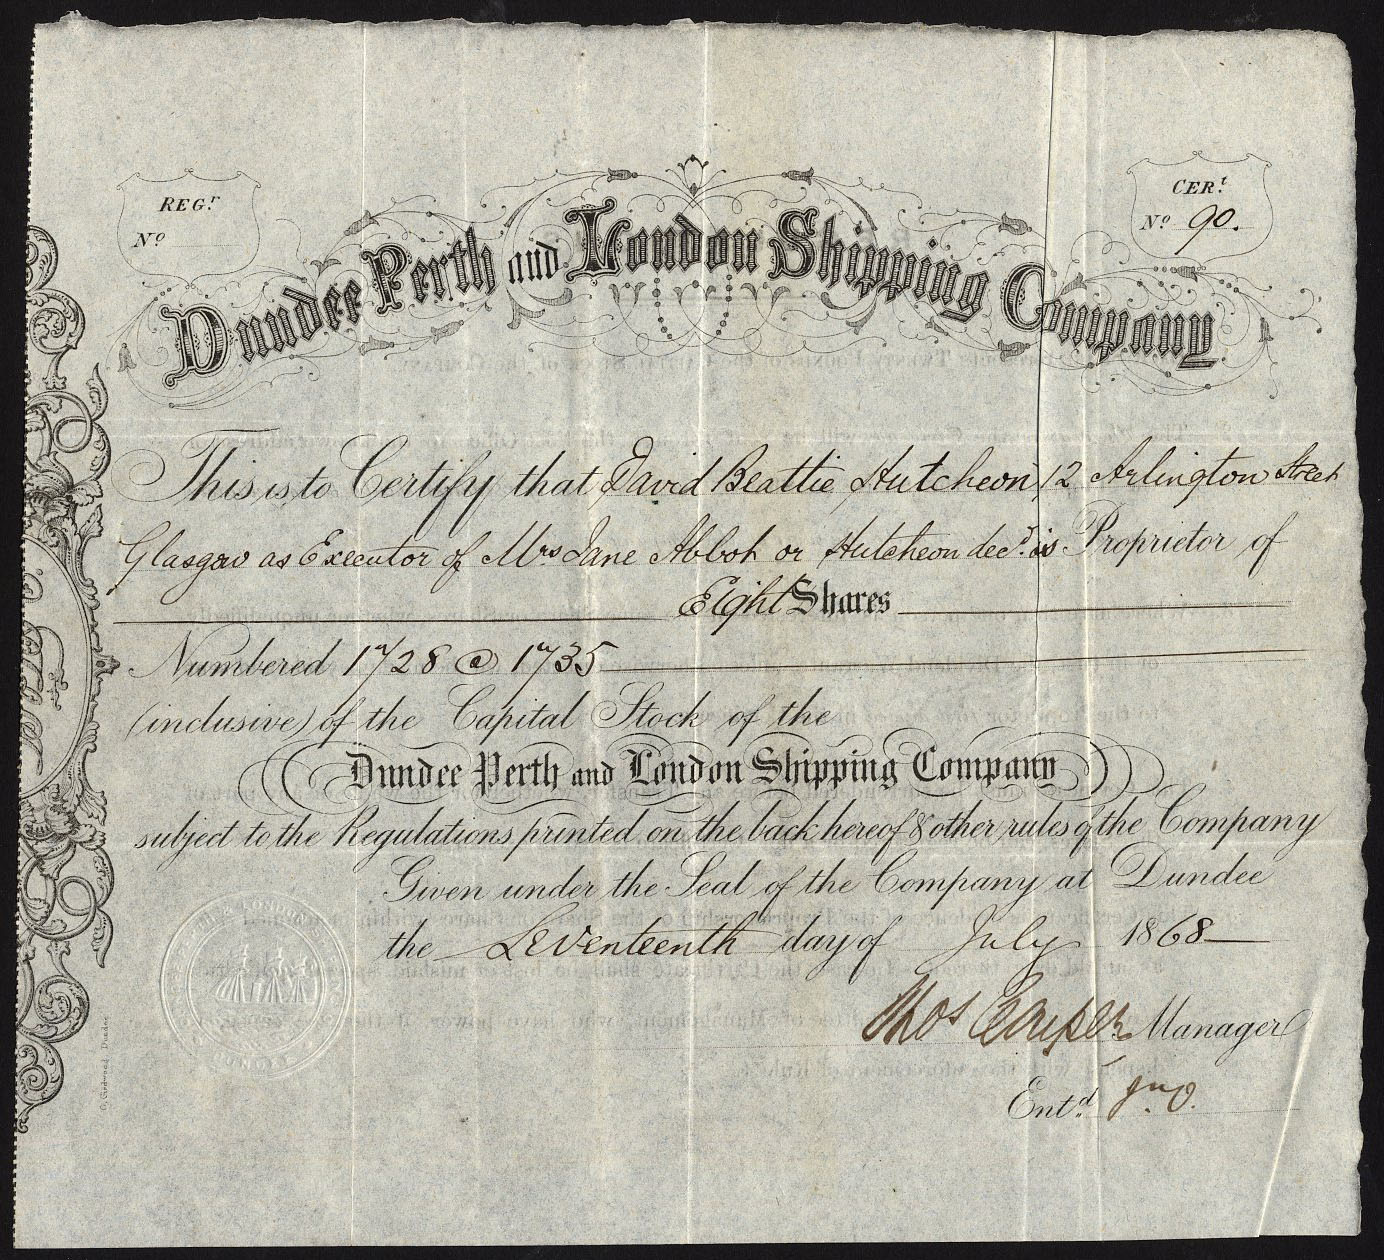 REGr
No
CERt
No 90.
Dundee Perth and London Shipping Company
This is to Certify that David Beattie Hutcheon, 12 Arlington Street
Glasgow as Executor of Mrs Jane Abbot or Hutcheon decd. is Proprietor of
Eight Shares
Numbered 1728 @ 1735
(inclusive) of the Capital Stock of the
Dundee Perth and London Shipping Company
subject to the Regulations printed on the back hereof & other rules of the Company
Given under the Seal of the Company at Dundee
the Seventeenth day of July 1868
Thos Couper Manager
Entd. JnO.
C. Girdwood, Dundee